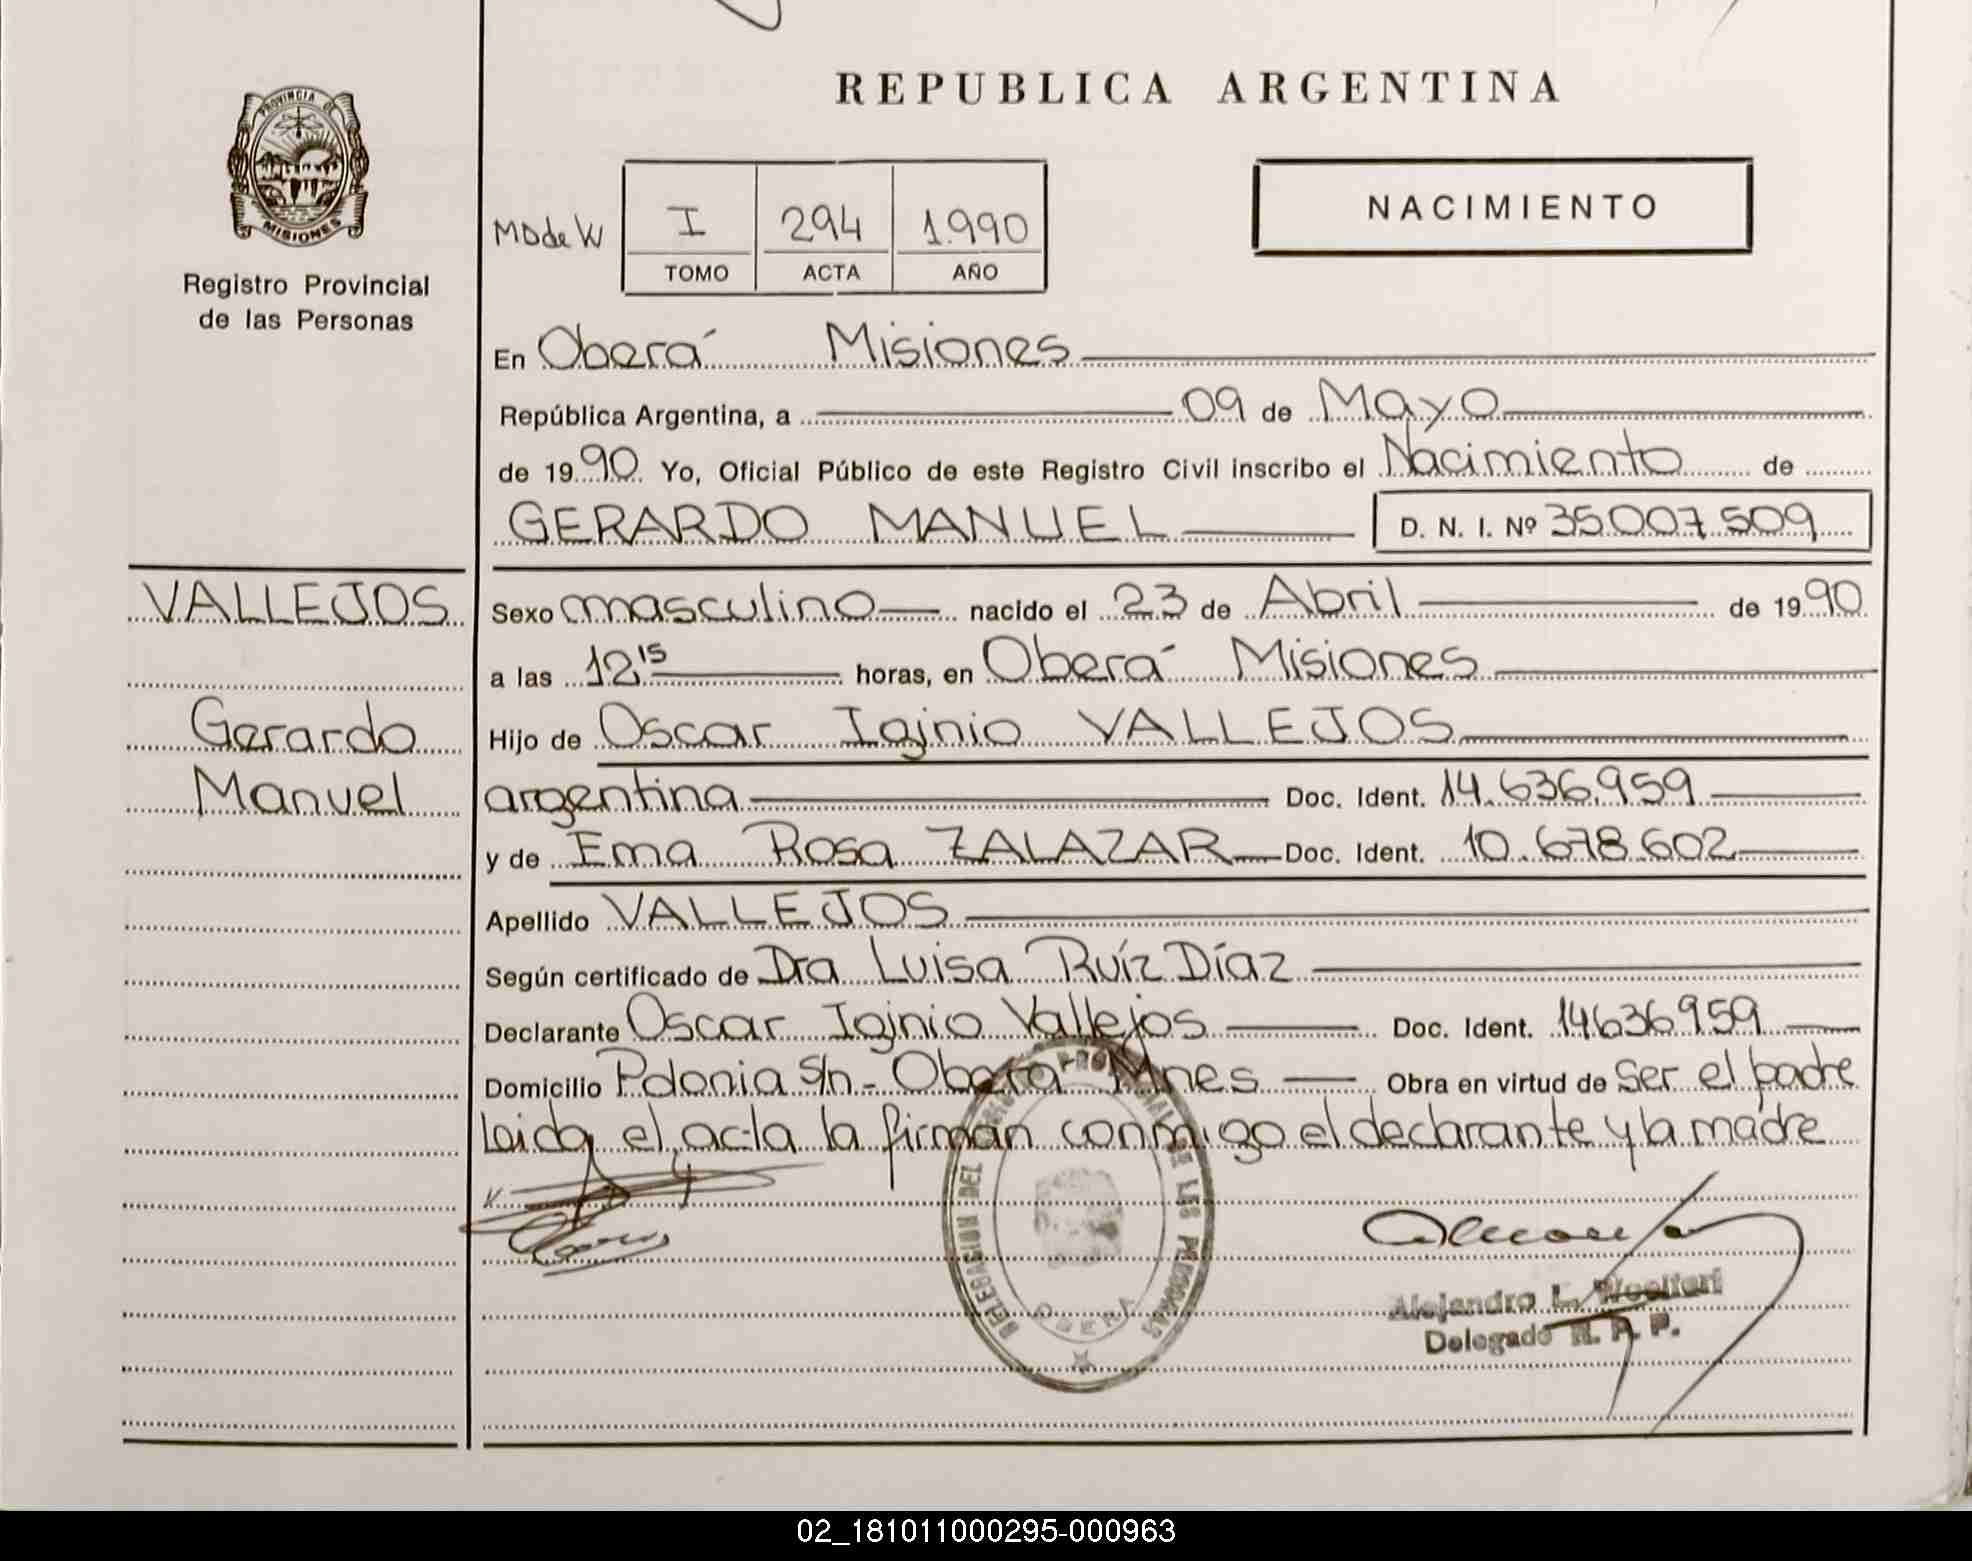 REPUBLICA ARGENTINA
PROVINCIA DE
MISIONES
Registro Provincial
de las Personas
I 294 1.990
TOMO ACTA AÑO
NACIMIENTO
En Oberá Misiones
República Argentina, a 09 de Mayo
de 1990 Yo, Oficial Público de este Registro Civil inscribo el Nacimiento de
GERARDO MANUEL D. N. I. Nº 35.007.509
VALLEJOS
Gerardo
Manuel
Sexo masculino nacido el 23 de Abril de 1990
a las 12 15 horas, en Oberá Misiones
Hijo de Oscar Iginio VALLEJOS
argentina Doc. Ident. 14.636.959
y de Ema Rosa ZALAZAR Doc. Ident. 10.678.602
Apellido VALLEJOS
Según certificado de Dra Luisa Ruíz Díaz
Declarante Oscar Iginio Vallejos Doc. Ident. 14636959
Domicilio Polonia S/n - Oberá Mnes Obra en virtud de Ser el padre
Leida el acta la firman conmigo el declarante y la madre
DELEGACION DEL REGISTRO PROVINCIAL DE LAS PERSONAS
OBERA
Alejandro L.
Delegado R. P. P.
02_181011000295-000963